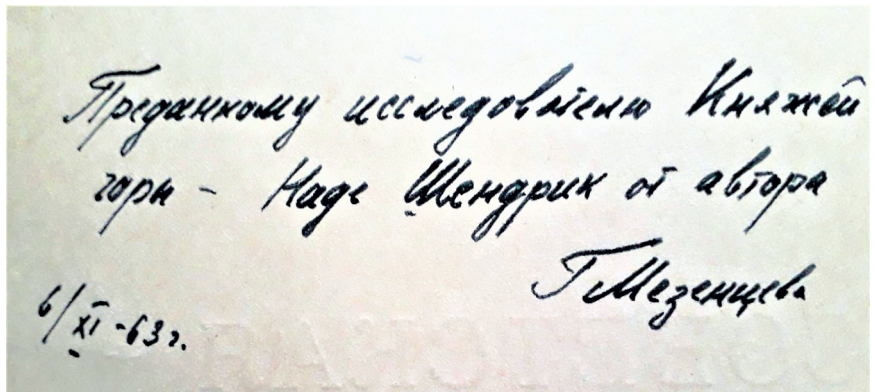 Преданному исследователю Княжой
горы - Наде Шендрик от автора
Г Мезенцева
6/XI-63 г.